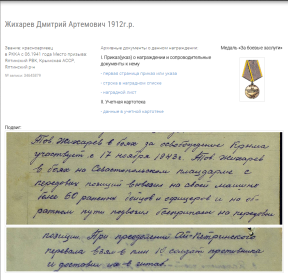 Жихарев Дмитрий Артемович 1912г.р.
Звание: красноармеец
в РККА с 06.1941 года Место призыва:
Ялтинский РВК, Крымская АССР,
Ялтинский р-н
Архивные документы о данном награждении:
I. Приказ(указ) о награждении и сопроводительные
документы к нему
- первая страница приказ или указ
- строка в наградном списке
- наградной лист
II. Учетная картотека
- данные в учетной картотеке
Медаль «За боевые заслуги»
Подвиг:
Тов. Жихарев в боях за освобождение Крыма
участвует с 17 ноября 1943 г. Тов. Жихарев
в боях на Севастопольском плацдарме с
передовых позиций вывозил на своей машине
более 60 раненых бойцов и офицеров и на об-
ратном пути подвозил боеприпасы на передовые
позиции. При преодолении Ай-Петринского
перевала взял в плен 10 солдат противника
и доставил их в штаб.